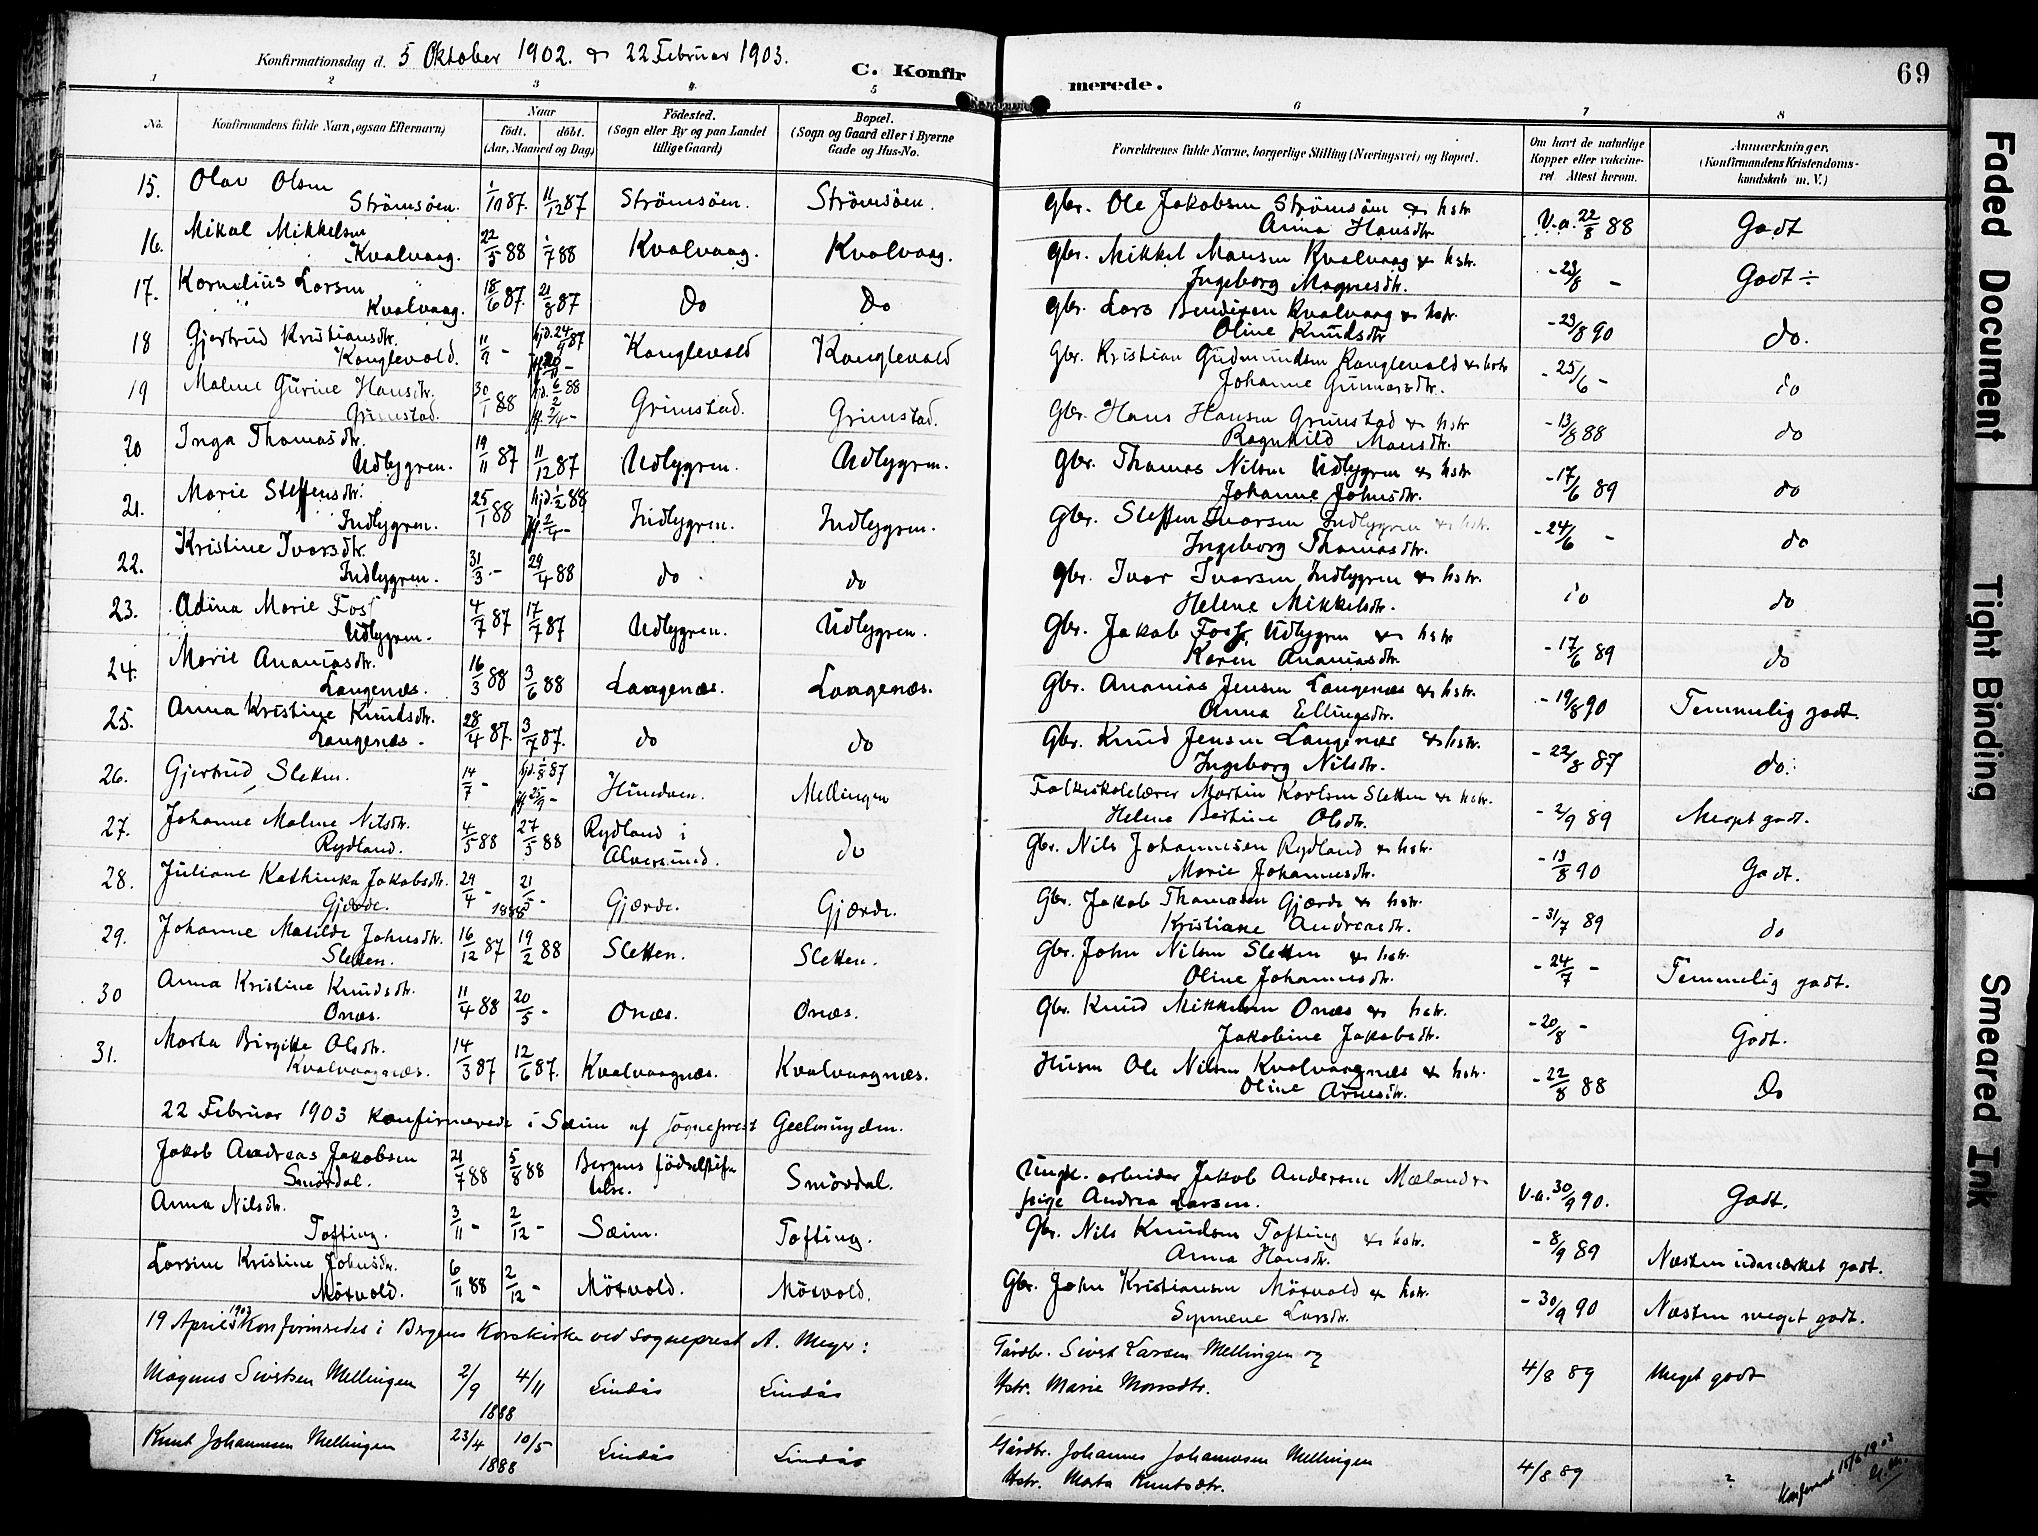 Konfirmationsdag d. 5 Oktober 1902. & 22 Februar 1903.
C. Konfirmerede.
69
1 2 3 4 5 6 7 8
No. Konfirmandens fulde Navn, ogsaa Efternavn) Naar født. døbt. (Aar, Maaned og Dag) Fødested. (Sogn eller By og paa Landet tillige Gaard) Bopæl. (Sogn og Gaard eller i Byerne Gade og Hus-No. Forældrenes fulde Navne, borgerlige Stilling (Næringsvei) og Bopæl. Om havt de naturlige Kopper eller vakcineret. Attest herom. Anmærkninger. (Konfirmandens Kristendomskundskab m. V.)
15. Olav Olsen Strømsøen. 1/11 87. 11/12 87 Strømsøen. Strømsøen. Gbr. Ole Jakobsen Strømsøen & hstr. V.a. 22/8 88 Godt
Anna Hansdtr
16. Mikal Mikkelsen Kvalvaag. 22/5 88 1/7 88 Kvalvaag. Kvalvaag. Gbr. Mikkel Monsen Kvalvaag & hstr. - 23/8 - Godt ÷
Ingeborg Magnesdtr.
17. Kornelius Larsen Kvalvaag. 18/6 87. 21/8 87 Do Do Gbr. Lars Bendixen Kvalvaag & hstr. - 23/8 90 do.
Oline Knudsdtr
18 Gjertrud Kristiansdtr. Konglevold. 11/9 - hjd. 24/9 87 Konglevold Konglevold Gbr. Kristian Gudmundsen Konglevold & hstr - 25/6 - do
Johanne Gunnarsdtr.
19 Malene Gurine Hansdtr. Grimstad. 30/1 88 hjd. 6/2 88 Grimstad. Grimstad. Gbr. Hans Hansen Grimstad & hstr - 13/8 88 do
Ragnhild Monsdtr.
20 Inga Thomasdtr. Udlygren. 19/11 87 11/12 87 Udlygren. Udlygren. Gbr. Thomas Nilsen Udlygren & hstr - 17/6 89 do
Johanne Johnsdtr.
21. Marie Steffensdtr. Indlygren. 25/1 88 hjd. 1/2 88 Indlygren. Indlygren. Gbr. Steffen Ivarsen Indlygren & hstr. - 24/6 - do
Ingeborg Thomasdtr.
22. Kristine Ivarsdtr. Indlygren. 31/3 - 29/4 88 do do Gbr. Ivar Ivarsen Indlygren & hstr. do do
Helene Mikkelsdtr.
23. Adina Marie Foss Udlygren. 4/7 87 17/7 87 Udlygren. Udlygren. Gbr. Jakob Foss, Udlygren & hstr - 17/6 89 do
Karen Ananiasdtr.
24. Marie Ananiasdtr. Langenæs. 16/3 88 3/6 88 Langenæs. Langenæs. Gbr. Ananias Jensen Langenæs & hstr. - 19/8 90 Temmelig godt.
Anna Ellingsdtr.
25. Anna Kristine Knudsdtr. Langenæs. 28/4 87. 3/7 87. do do Gbr. Knud Jensen Langenæs & hstr. - 22/8 87 do.
Ingeborg Nilsdtr.
26. Gjertrud Sletten. 14/7 - hjd. 1/8 87 Hundven. Mellingen Folkeskolelærer Martin Karlsen Sletten & hstr. - 2/9 89 Meget godt.
Helene Bertine Olsdtr.
27. Johanne Malene Nilsdtr. Rydland. 4/5 88 27/5 88 Rydland i Alversund. do Gbr. Nils Johannesen Rydland & hstr. - 13/8 90 Godt.
Marie Johannesdtr.
28. Juliane Kathinka Jakobsdtr. Gjærde. 29/4 - 21/5 - 1888 Gjærde. Gjærde. Gbr. Jakob Thomasen Gjærde & hstr. - 31/7 89 do
Kristiane Andreasdtr.
29. Johanne Matilde Johnsdtr. Sletten. 16/12 87 19/2 88 Sletten. Sletten. Gbr. John Nilsen Sletten & hstr. - 24/7 - Temmelig godt.
Oline Johannesdtr.
30 Anna Kristine Knudsdtr. Onæs. 11/4 88 20/5 - Onæs. Onæs. Gbr. Knud Mikkelsen Onæs & hstr. - 20/8 - Godt.
Jakobine Jakobsdtr.
31. Marta Birgitte Olsdtr. Kvalvaagnæs. 14/3 87 12/6 87. Kvalvaagnæs. Kvalvaagnæs. Husm Ole Nilsen Kvalvaagnæs & hstr. - 22/8 88 Do
Oline Arnesdtr.
22 Februar 1903 konfirmerede i Sæim af sogneprest Geelmuyden.
Jakob Andreas Jakobsen Smørdal. 21/7 88 5/8 88 Bergens fødselsstiftelse. Smørdal. Ungk. arbeider Jakob Andersen Mæland & V.a. 30/9 90. Godt.
pige Andrea Larsen.
Anna Nilsdtr. Tofting. 3/11 - 2/12 - Sæim. Tofting. Gbr. Nils Knudsen Tofting & hstr. - 8/9 89 Næsten udmærket godt.
Anna Hansdtr.
Larsine Kristine Johnsdtr. Møxvold. 6/11 88 2/12 - Møxvold. Møxvold. Gbr. John Kristiansen Møxvold & hstr. - 30/9 90 Næsten meget godt.
Synneve Larsdtr.
19 April 1903 Konfirmeredes i Bergens Korskirke ved sogneprest A. Meyer:
Magnus Sivertsen Mellingen 2/9 4/11 1888 Lindås Lindås Gårdbr. Sivert Larsen Mellingen og 4/8 89 Meget godt
Hstr. Marie Monsdtr.
Knut Johannesen Mellingen 23/4 10/5 1888 Lindås Lindås Gårdbr. Johannes Johannesen Mellingen 4/8 89 ?
Hstr. Marta Knutsdtr.
Faded Document
Tight Binding
Smeared Ink